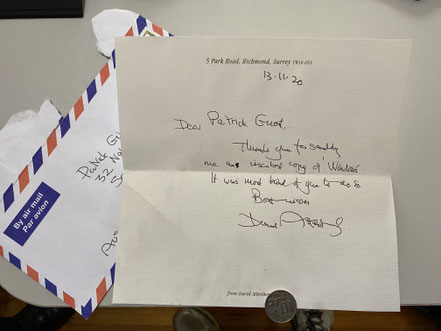 5 Park Road, Richmond, Surrey TW10
13·11·20
Dear Patrick Guest,
Thank you for sending
me an copy of 'Windows'
It was most kind of you to do so
Best wishes
David
from David
By air mail
Par avion
Patrick Gu
32